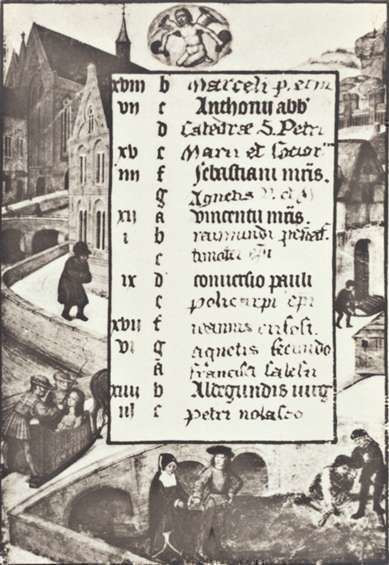 xviii b Marceli p. et m
vii c Anthonii abb
d Catedræ S. Petri
xv e Marii et socior
iiii f Sebastiani mris.
g Agnetis V. et M
xii a vincentii mris.
i b raimundi penaf.
c timotei epi
ix d conversio pauli
e policarpi epi
xvii f ioannis crisosi.
vi g agnetis secundo
a francisci salesii
xiiii b Aldegundis virg
iii c petri nolasco